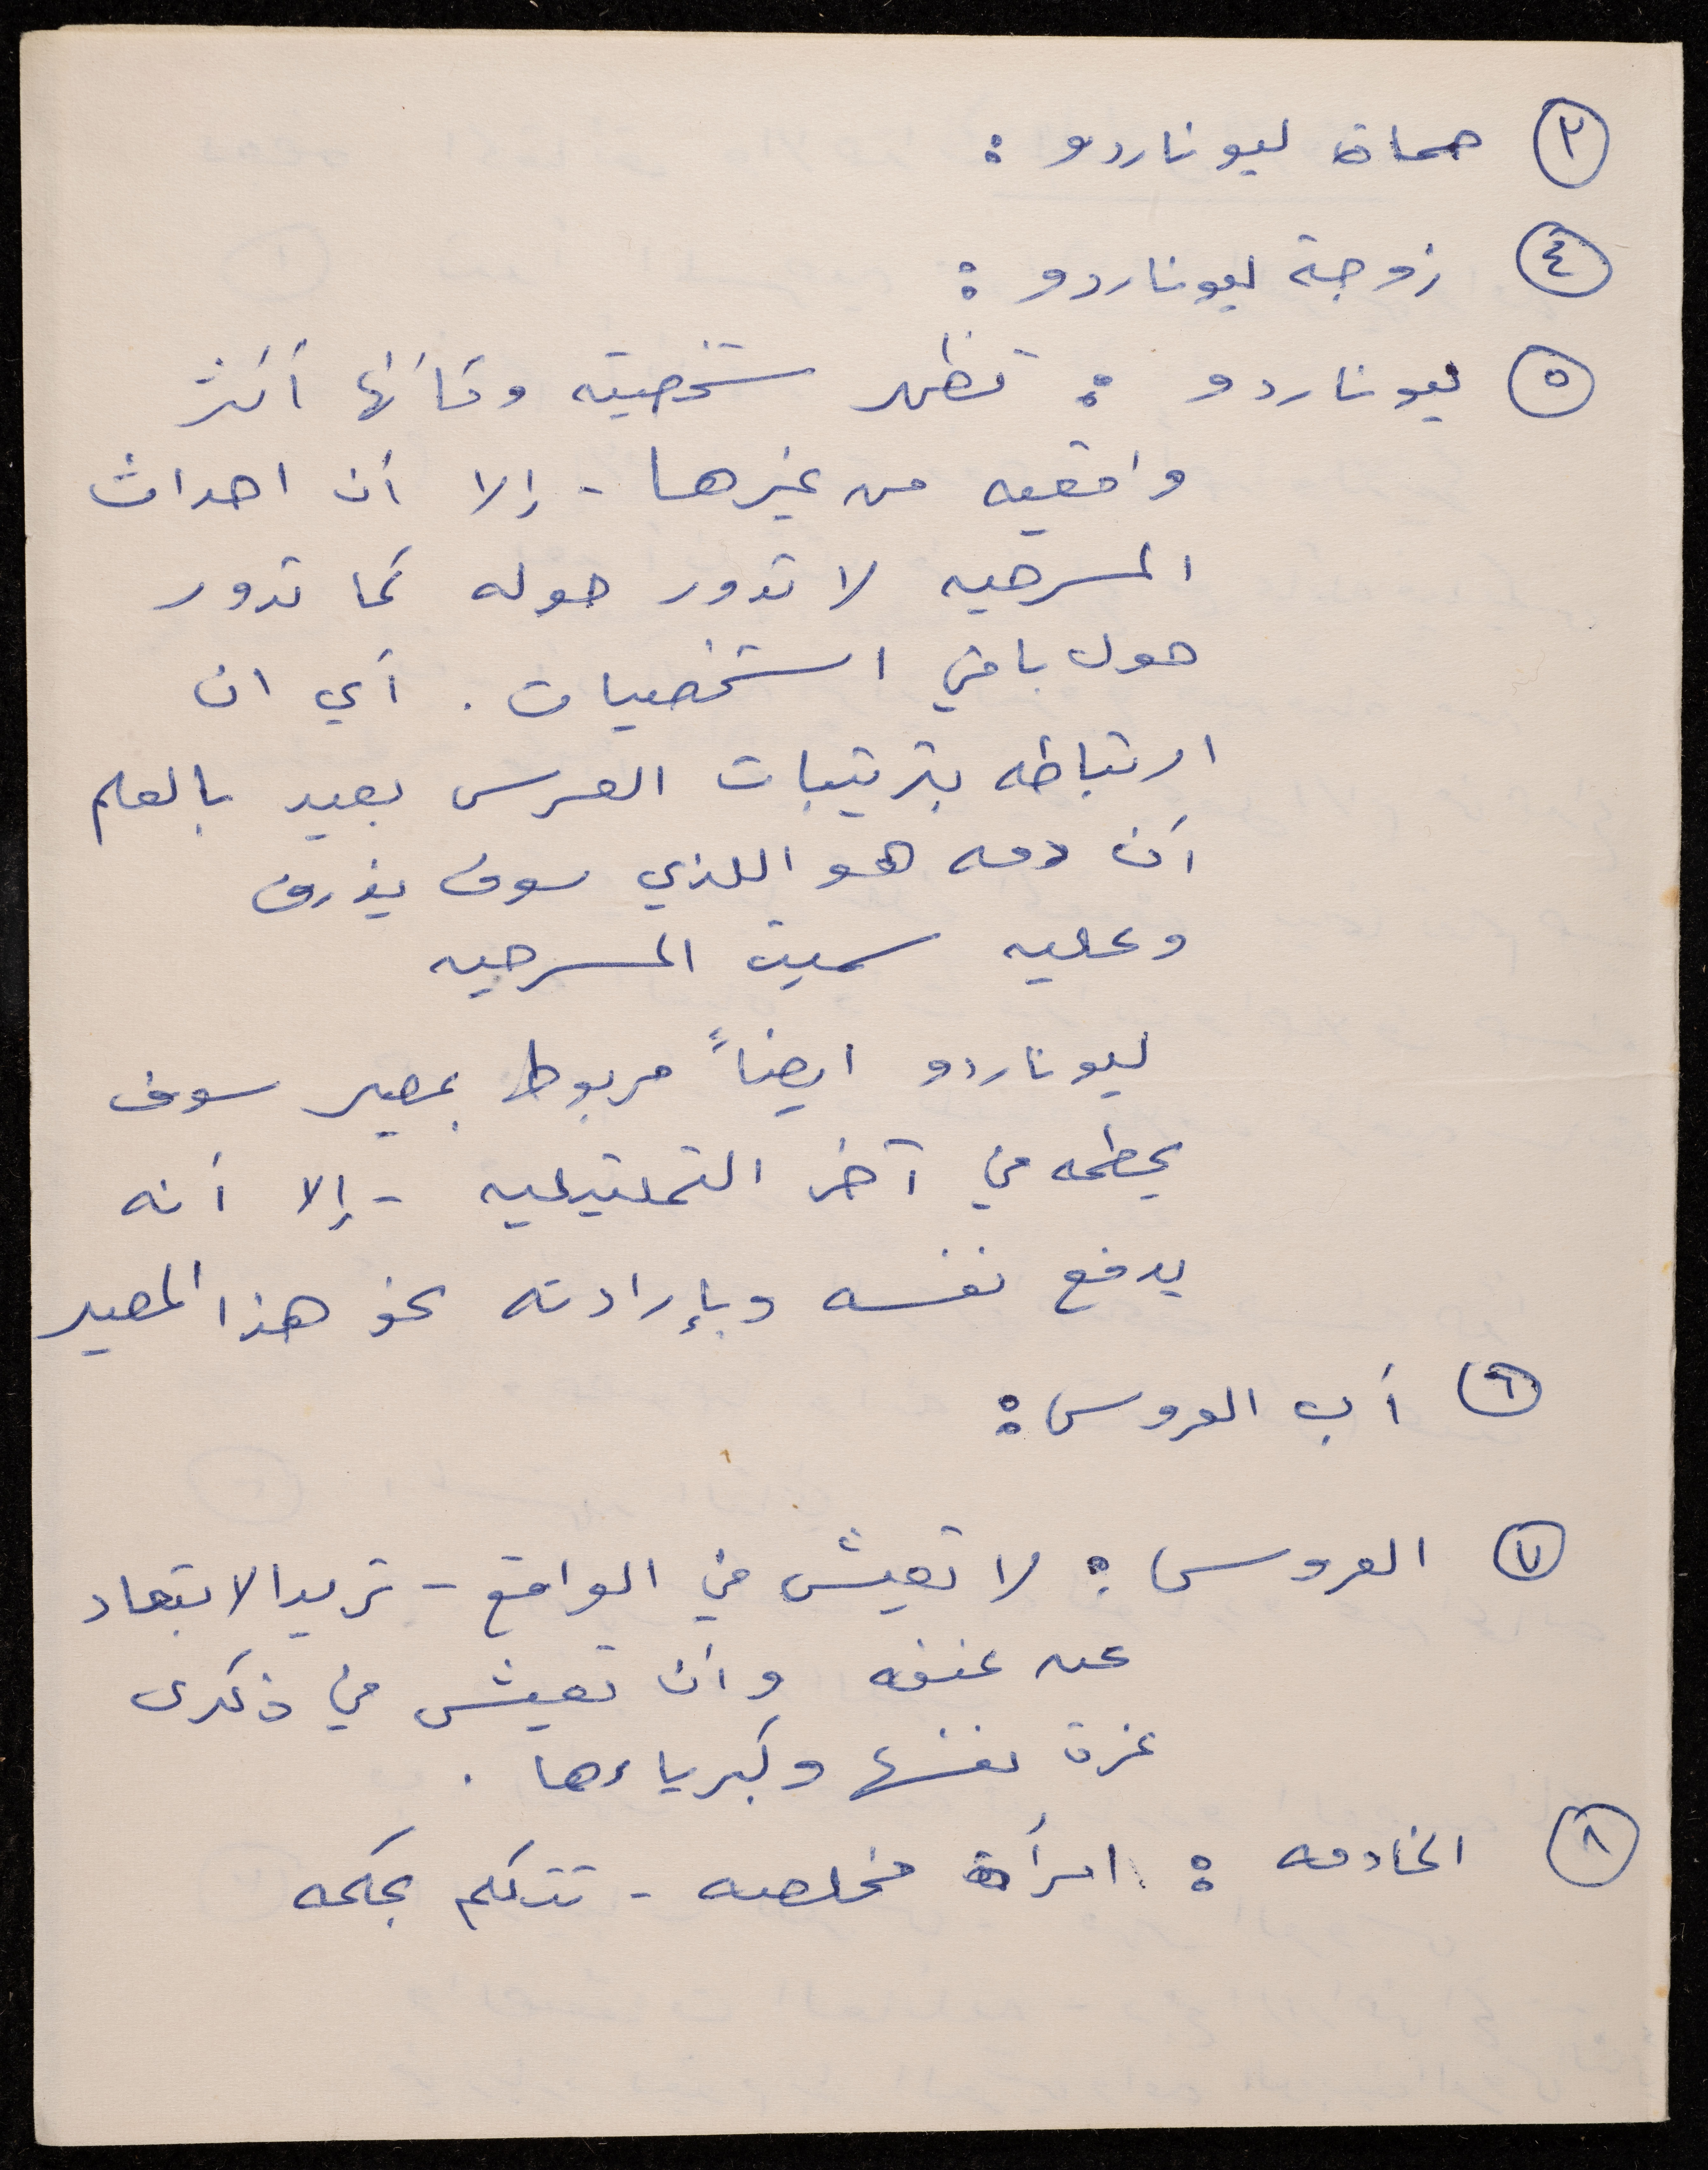 ٢ حماة ليوناردو :
٤ زوجة ليوناردو :
٥ ليوناردو : تظهر شخصيته وكأنها أكثر
واقعيه من غيرها - إلا أن احداث
المسرحيه لا تدور حوله كما تدور
حول باقي الشخصيات . أي ان
ارتباطه بترتيبات العرس بعيد بالعلم
أن دمه هو اللذي سوف يذرف
وعليه سميت المسرحيه
ليوناردو ايضاً مربوط بمصير سوف
يحطمه في آخر التمثيليه - إلا أنه
يدفع نفسه وبإرادته نحو هذا المصير
٦ أب العروس :
٧ العروس : لا تعيش في الواقع - تريد الابتعاد
عن عنفه وأن تعيش في ذكرى
عزة نفسها وكبرياءها .
٨ الخادمه : امرأة مخلصه - تتكلم بحكمه